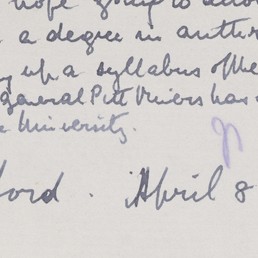 hope going to allow
a degree in anthro
up a syllabus of the
general Pitt Rivers has
University.
ford. April 8